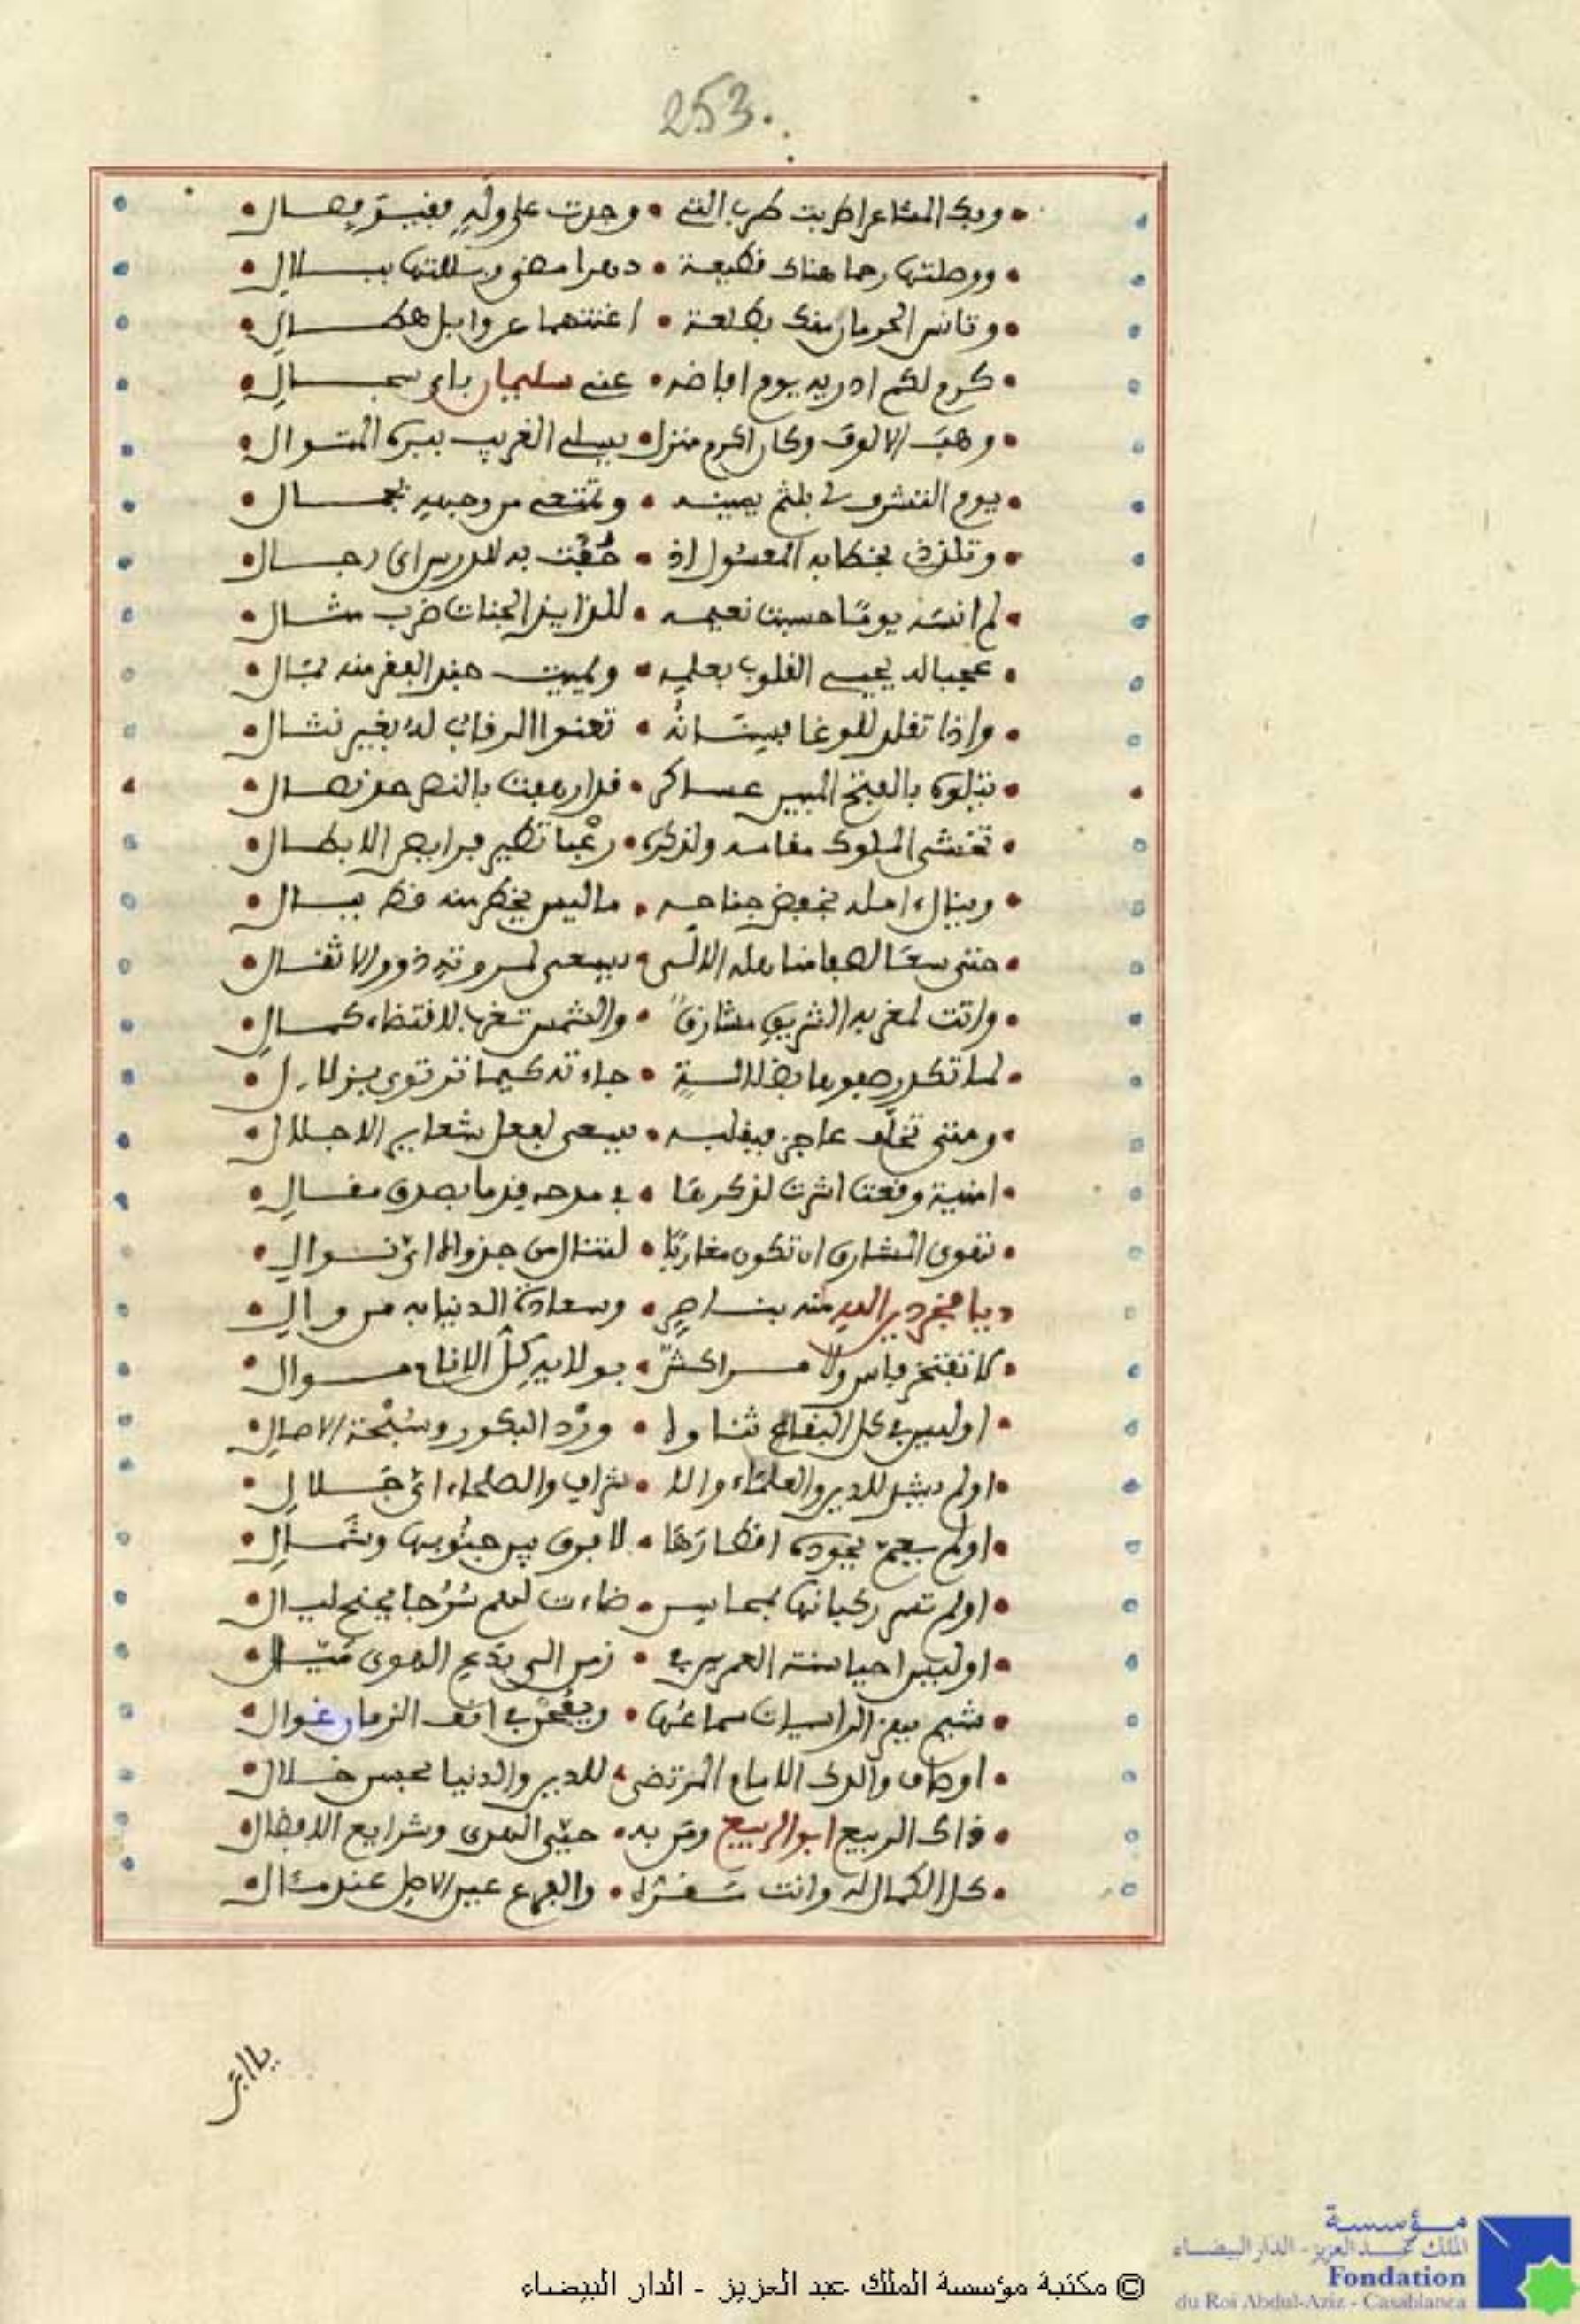 253
وبك المشاعر اطربت طرب التي • وجدت على وله بغيب وصال
ووصلتها رحما هناك قطيعة • دهرا مضى وبللتها ببلال
وتانس الحرمان منك بطلعة • اغنتهما عن وابل هطال
كرم لكم ادريه يوم افاضه • عني سليمان باي سجال
وهب الالوف وكان اكرم منزل • يسلي الغريب ببره المتوال
يوم التشرف لي بلثم يمينه • وتمتعي من وجهه بجمال
وتلذذي بخطابه المعسول اذ • حفت به للدرس اي رجال
لم انسه يوما حسبت نعيمه • للذايذ الجنات ضرب مثال
عجبا له يحيي القلوب بعلمه • ويميت جند الفقر منه بمال
واذا تقلد للوغا بيسانه • تعنوا الرقاب له بغير نشال
تتلوه بالفتح المبين عساكر • قد ارهفت بالنصر حد نصال
تخشى الملوك مقامه ولذكره • رعبا تطير فرايص الابطال
وينال امله بخفض جناحه • ما ليس يخطر منه قط ببال
حتى سعا لصفا مناهله الالى • يسعى لمروته ذوو الاثقال
واتت لمغربه الشريف مشارق • والشمس تغربها لاقتضاء كمال
لما تكدر صفوها بضلالة • جاءته كيما ترتوي بزلال
ومتى تخلف عاجز فبقلبه • يسعى لفعل شعاير الاجلال
امنية وقعت اثرت لذكرها • في مدحه قدما بصدق مقال
تهوى المشارق ان تكون مغاربا • لتنال من جدواه اي نوال
ديا مفخر دين الله منه بناصر • وسعادة الدنيا به من وال
لا تفتخر فاس ولا مراكش • بولايه كل الانام موال
اوليس في كل البقاع ثناوه • ورد البكور وسبحة الاصال
اولم يشد للدين والعلماء والا • شراف والصلحاء اي جلال
اولم يعم بجوده اقطارها • لا فرق بين جنوبها وشمال
اولم تسر ركبانها بمحاسن • ضاءت لهم سرجا بجنح ليال
اوليس احيا سنة العمرين في • زمن الى بدع الهوى ميال
شيم يهز الراسيات سماعها • ويقمن في انف الزمان غوال
اوصاف والدك الامام المرتضى • للدين والدنيا بحسن خلال
ذاك الربيع ابو الربيع ومن به • حيي الهدى وشرايع الافضال
كل الكمال له وانت مقره • والفرع عين الاصل عند مئال
يا ابن
مؤسسة
الملك عبد العزيز - الدار البيضاء
Fondation
du Roi Abdul-Aziz - Casablanca
© مكتبة مؤسسة الملك عبد العزيز - الدار البيضاء